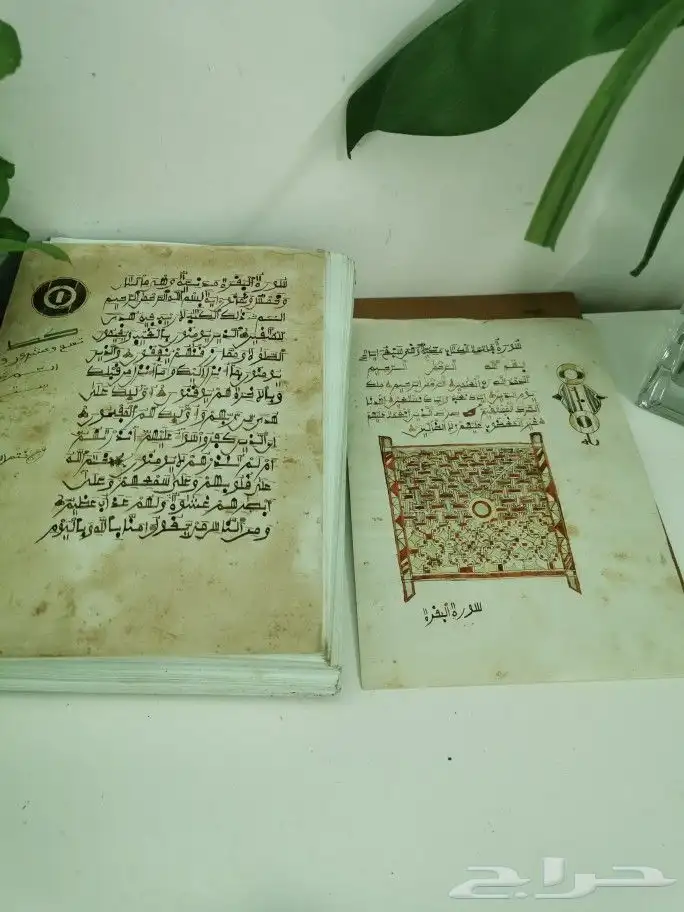 سورة البقرة مدنية وهي مايتان
اية بسم الله الرحمن الرحيم
ذلك الكتب لا ريب فيه هدى
للمتقين الذين يومنون بالغيب ويقيمون
الصلوة ومما رزقنهم ينفقون والذين
يومنون بما انزل اليك وما انزل من قبلك
وبالاخرة هم يوقنون اوليك على
هدى من ربهم واوليك هم المفلحون
ان الذين كفروا سواء عليهم انذرتهم
ام لم تنذرهم لا يومنون ختم الله
على قلوبهم وعلى سمعهم وعلى
ابصرهم غشوة ولهم عذاب عظيم
ومن الناس من يقول امنا بالله وباليوم
سورة فاتحة الكتاب مكية وهي سبع ايات
بسم الله الرحمن الرحيم
الحمد لله رب العلمين الرحمن الرحيم ملك
يوم الدين اياك نعبد واياك نستعين اهدنا
الصراط المستقيم صراط الذين انعمت عليهم
غير المغضوب عليهم ولا الضالين
سورة البقرة
حراج